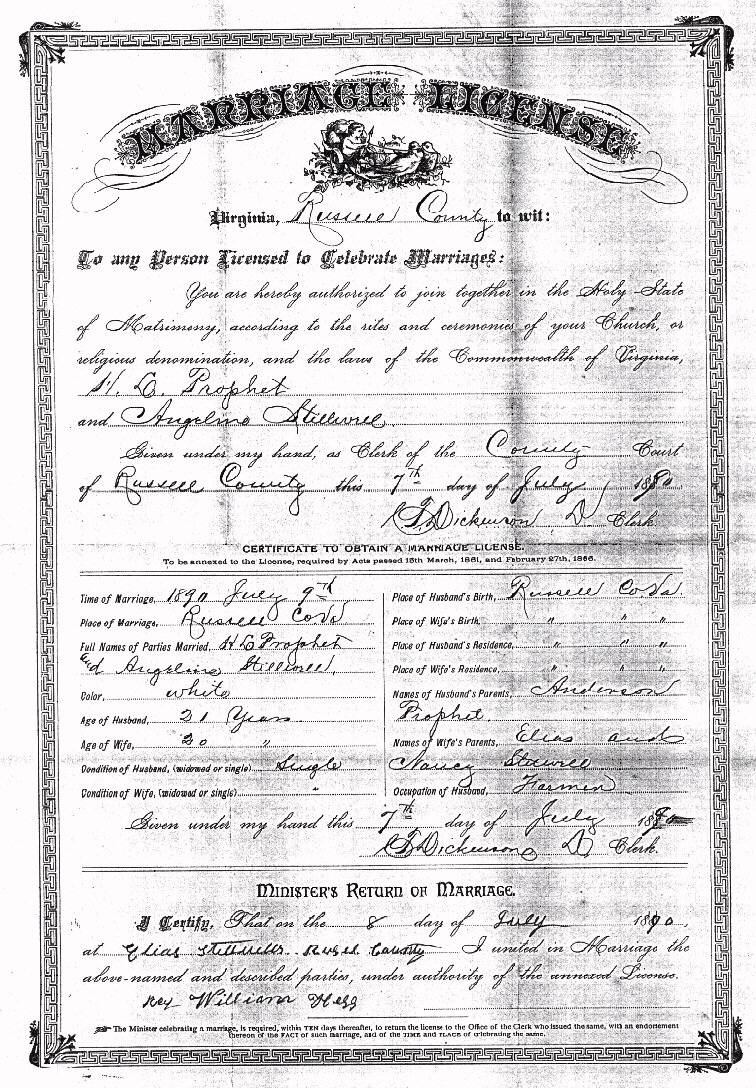 MARRIAGE LICENSE
Virginia, Russell County to wit:
To any Person Licensed to Celebrate Marriages:
You are hereby authorized to join together in the Holy State
of Matrimony, according to the rites and ceremonies of your Church, or
religious denomination, and the laws of the Commonwealth of Virginia,
H. C. Prophet
and Angeline Stillwell
Given under my hand, as Clerk of the County Court
of Russell County this 7th day of July 1890
Dickenson D. Clerk
CERTIFICATE TO OBTAIN A MARRIAGE LICENSE.
To be annexed to the License, required by Acts passed 15th March, 1861, and February 27th, 1866.
Time of Marriage, 1890 July 9th
Place of Marriage, Russell Co Va
Full Names of Parties Married, H C Prophet
and Angeline Stillwell,
Color, white
Age of Husband, 21 Years
Age of Wife, 20 "
Condition of Husband, (widowed or single) Single
Condition of Wife, (widowed or single) "
Place of Husband's Birth, Russell Co Va
Place of Wife's Birth, " " "
Place of Husband's Residence, " " "
Place of Wife's Residence, " " "
Names of Husband's Parents, Anderson
Prophet.
Names of Wife's Parents, Elias and
Nancy Stillwell
Occupation of Husband, Farmer
Given under my hand this 7th day of July 1890
Dickenson D. Clerk.
MINISTER'S RETURN OF MARRIAGE.
I Certify, That on the 8 day of July 1890,
at Elias Stillwells Russell County I united in Marriage the
above-named and described parties, under authority of the annexed License.
Rev William Hess
The Minister celebrating a marriage, is required, within TEN days thereafter, to return the license to the Office of the Clerk who issued the same, with an endorsement
thereon of the FACT of such marriage, and of the TIME and PLACE of celebrating the same.